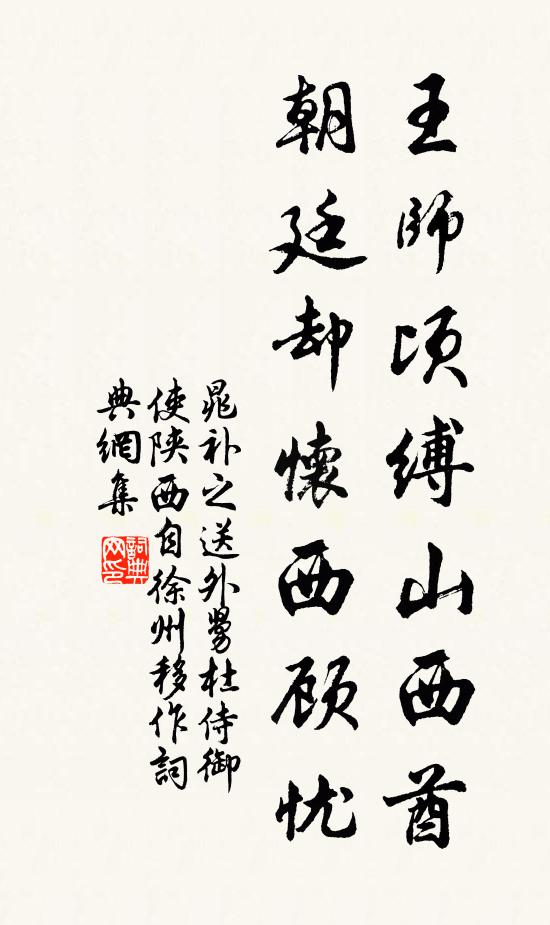 王師頃縛山西酋
朝廷却懷西顾忧
晁补之送外舅杜侍御
使陕西自徐州移作詞
典網集
詞典网印